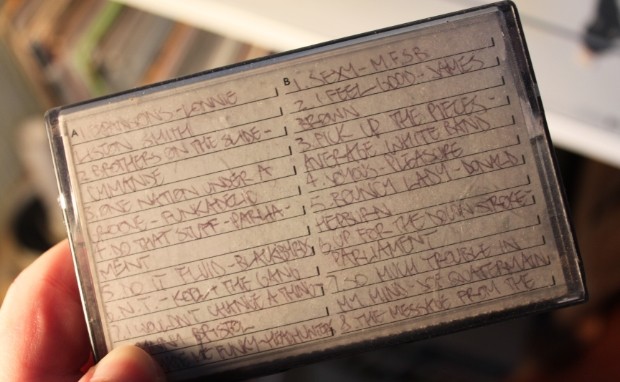 A
1. EXPANSIONS - LONNIE
LISTON SMITH
2. BROTHERS ON THE SLIDE -
CYMANDE
3. ONE NATION UNDER A
GROOVE - FUNKADELIC
4. DO THAT STUFF - PARLIA-
MENT
5. DO IT FLUID - BLACKBYRDS
6. N.T. - KOOL + THE GANG
7. I WOULDN'T CHANGE A THING
BRISTOL
FUNKY - HEADHUNTERS
B
1. SEXY - M.F.S.B
2. I FEEL GOOD - JAMES
BROWN
3. PICK UP THE PIECES -
AVERAGE WHITE BAND
4. PLEASURE
5. BOUNCY LADY - DONALD
HEPBURN
6. UP FOR THE DOWNSTROKE
PARLIAMENT
7. SO MUCH TROUBLE IN
MY MIND - SIR QUATERMAIN
8. THE MESSAGE FROM THE